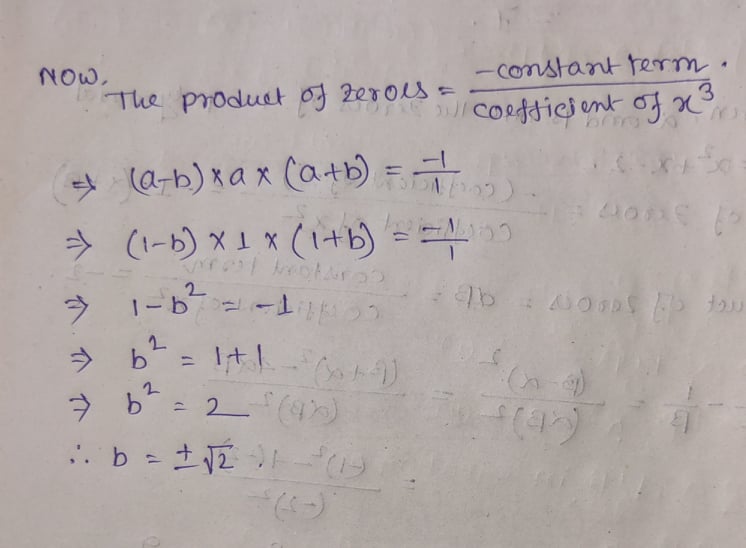 NOW,
The product of zeroes = -constant term.
coefficient of x³
⇒ (a-b) × a × (a+b) = -1/1
⇒ (1-b) × 1 × (1+b) = -1/1
⇒ 1-b² = -1
⇒ b² = 1+1
⇒ b² = 2
∴ b = ±√2